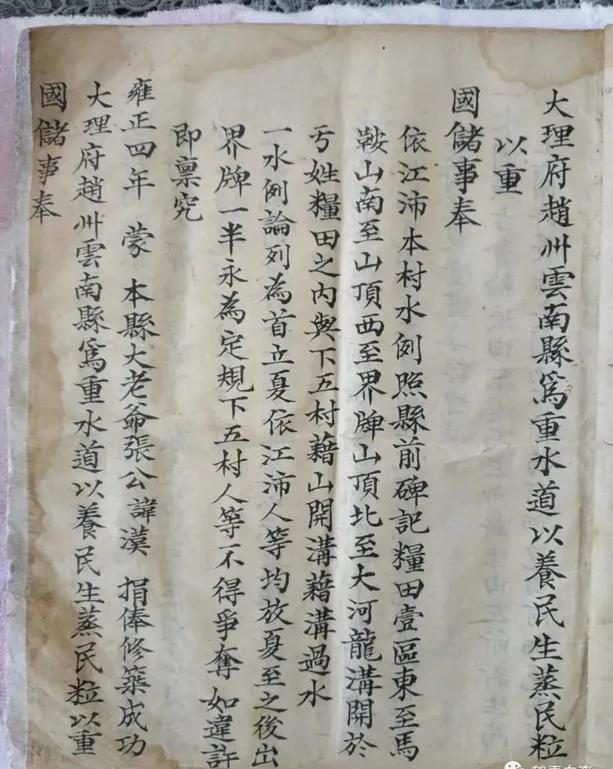 大理府趙州雲南縣爲重水道以養民生蒸民粒
以重
國儲事奉
依江沛本村水例照縣前碑記糧田壹區東至馬
鞍山南至山頂西至界牌山頂北至大河龍溝開於
亏姓糧田之內與下五村藉山開溝藉溝過水
一水例論列為首立夏依江沛人等均放夏至之後出
界牌一半永為定規下五村人等不得爭奪如違許
即禀究
雍正四年 蒙 本縣大老爺張公諱漢 捐俸修築成功
大理府趙州雲南縣爲重水道以養民生蒸民粒以重
國儲事奉